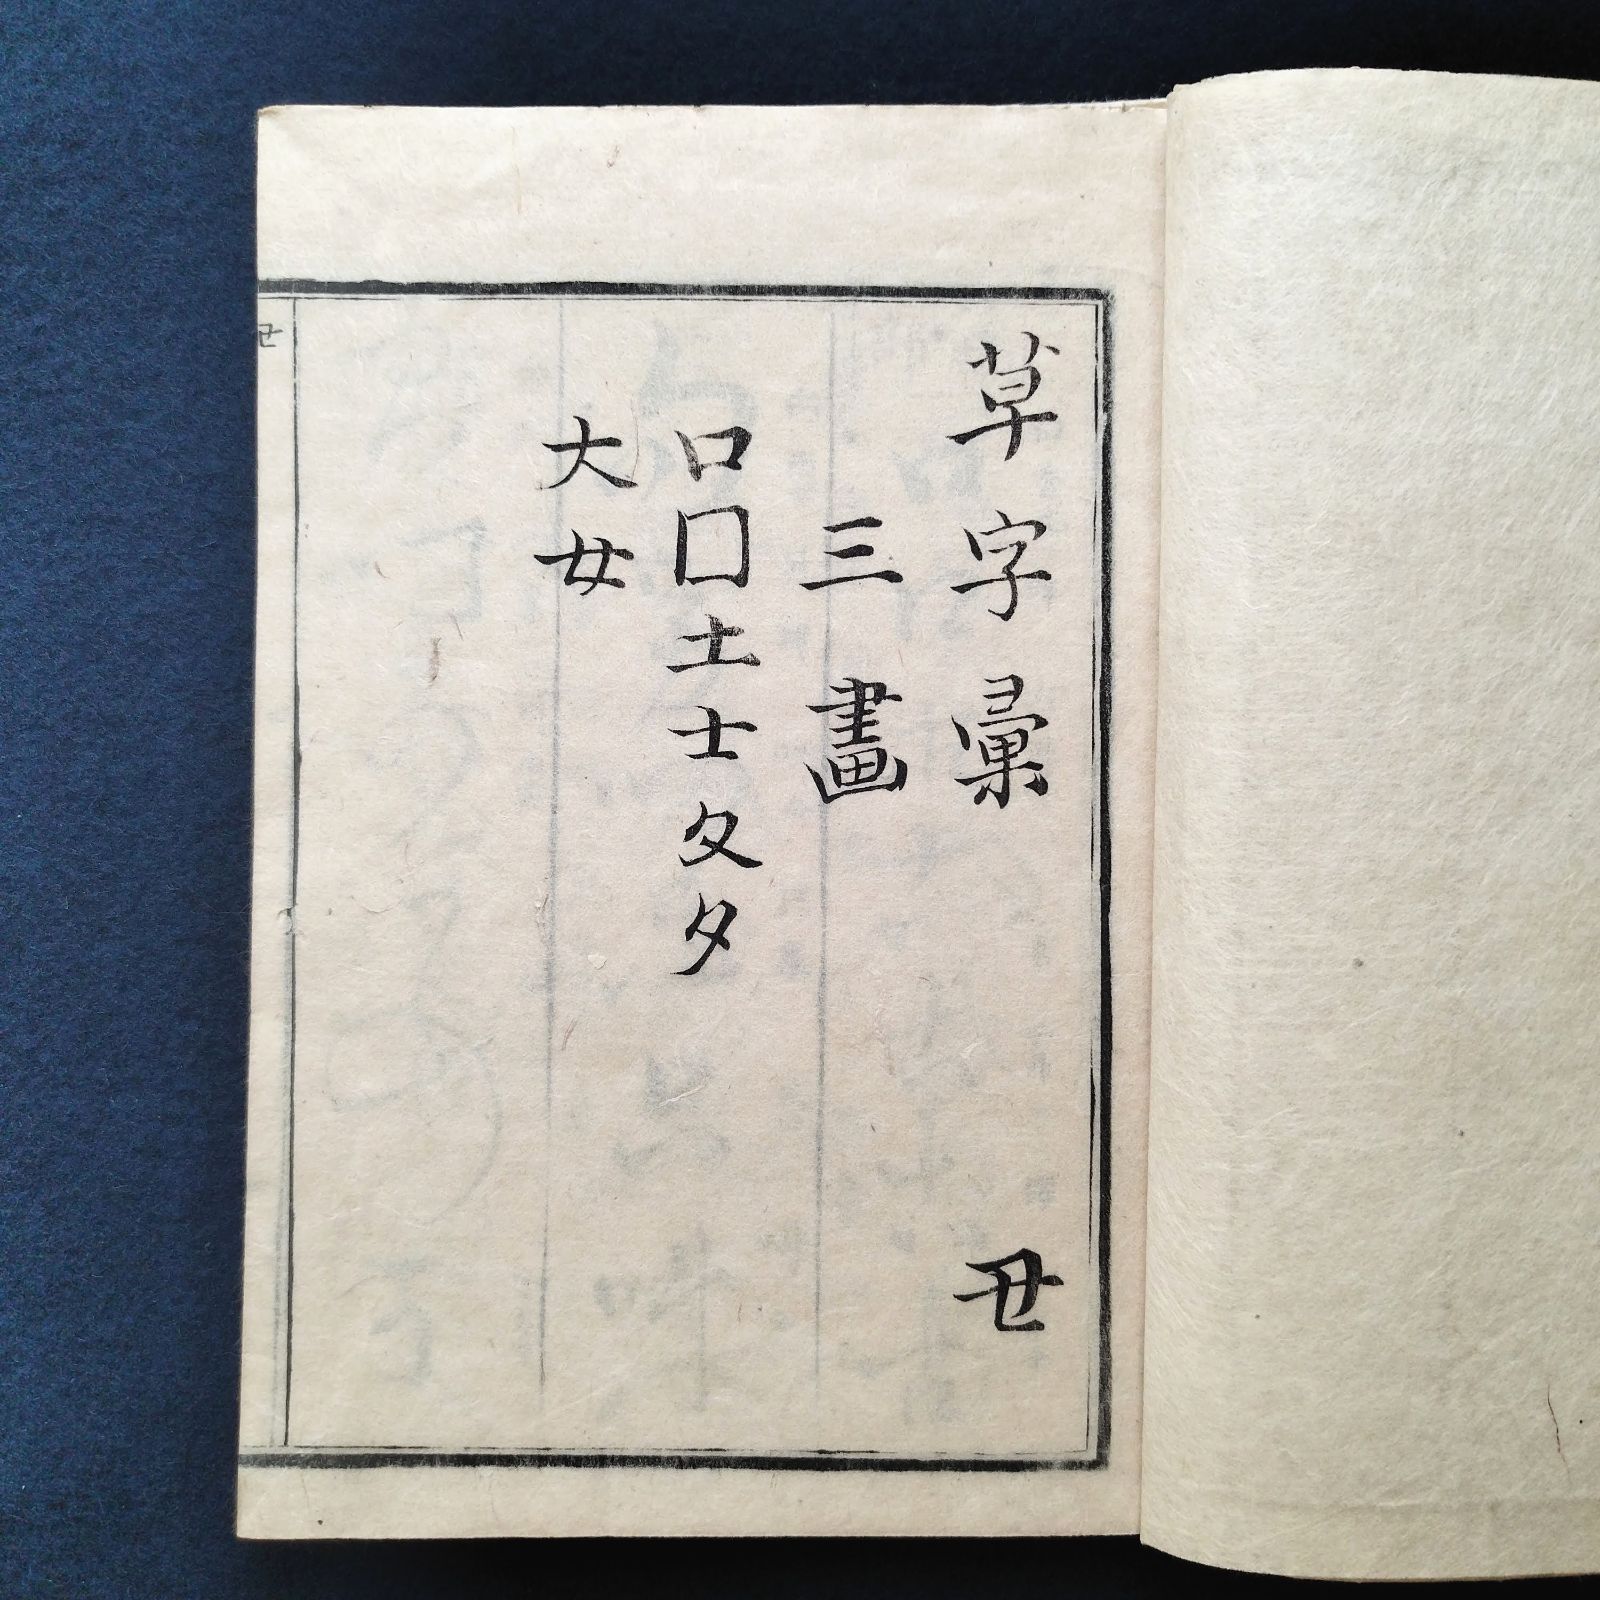 草字彙 丑
三畫
口囗土士夊夕
大女
丑